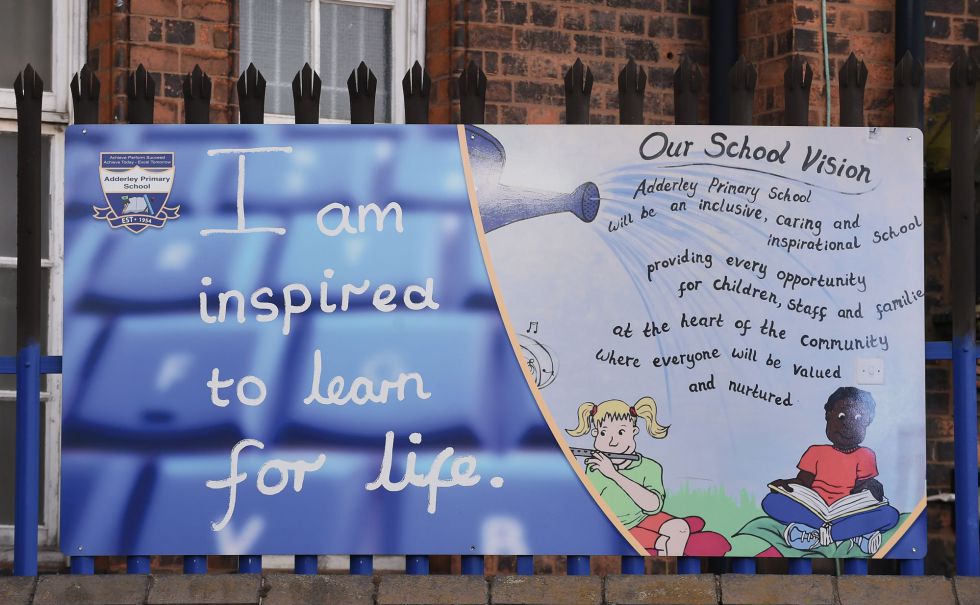 Achieve Perform Succeed
Achieve Today - Excel Tomorrow
Adderley Primary
School
EST 1954
I am
inspired
to learn
for life.
Our School Vision
Adderley Primary School
will be an inclusive, caring and
inspirational School
providing every opportunity
for children, Staff and familie
at the heart of the community
Where everyone will be valued
and nurtured